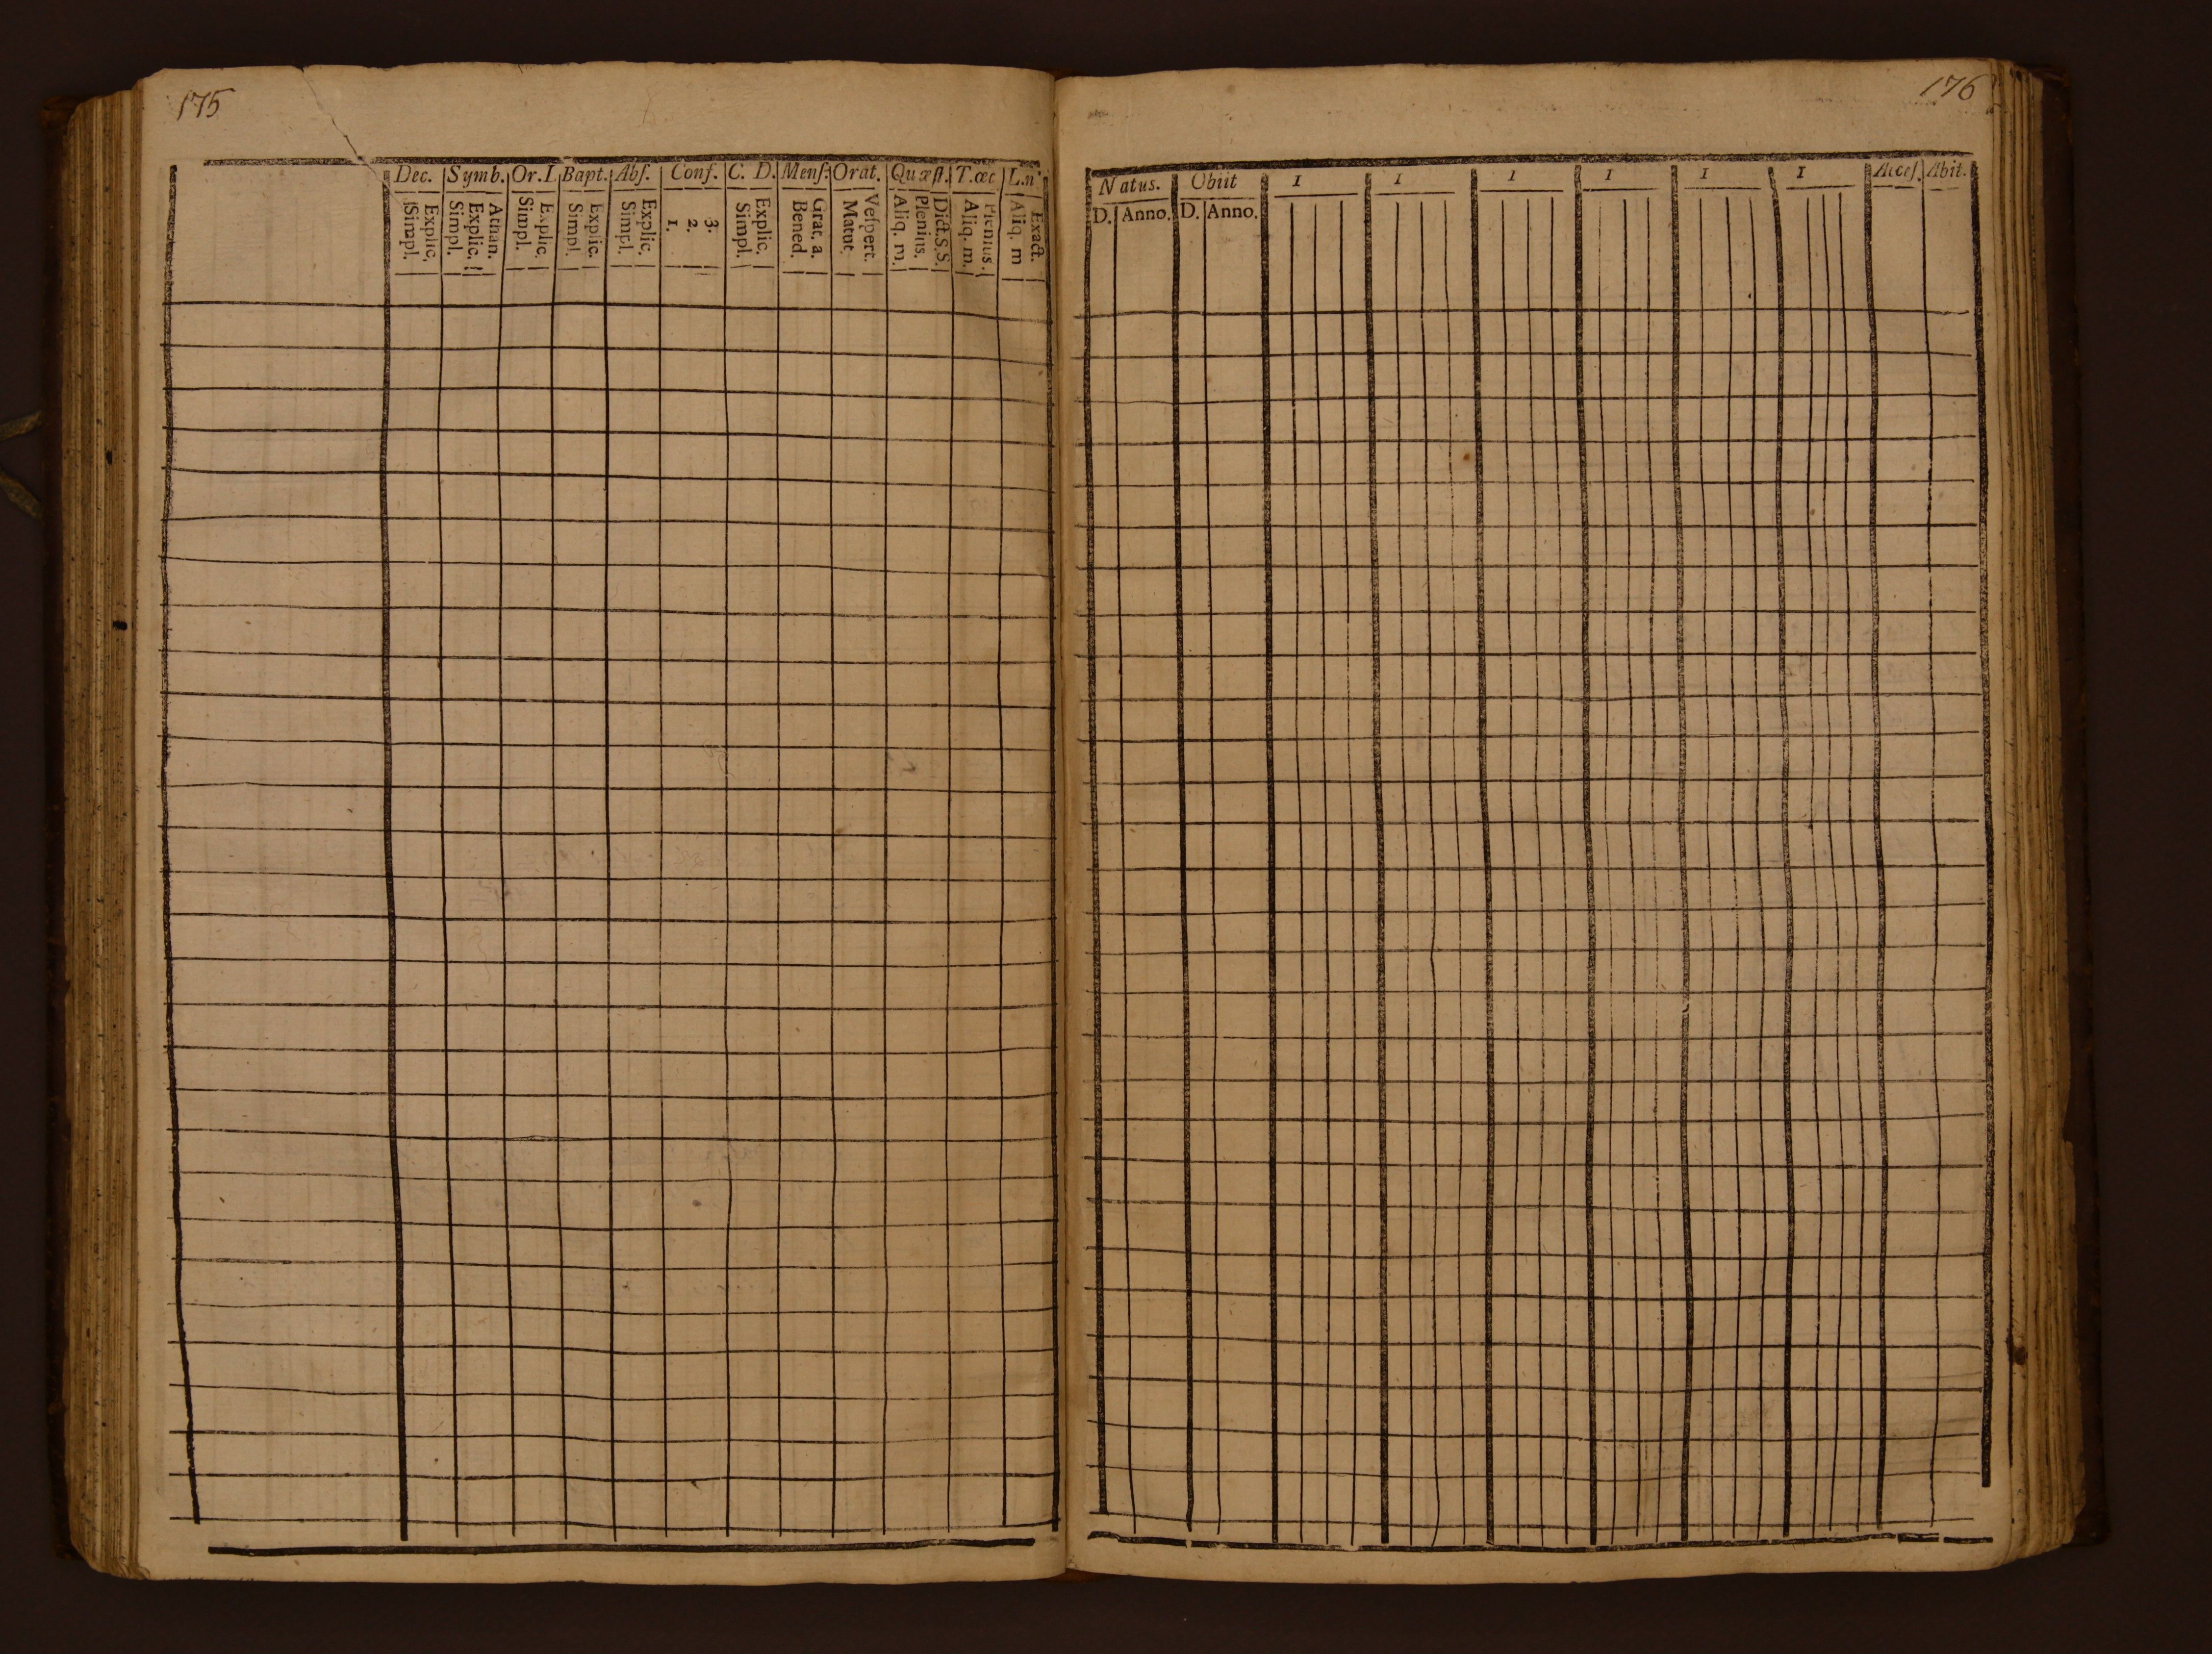 175
Dec. Symb. Or.I Bapt. Abſ. Conf. C. D. Menſ. Orat. Quæſt. T.œc L.n
Explic.
Simpl.
Athan.
Explic.
Simpl.
Explic.
Simpl.
Explic.
Simpl.
Explic.
Simpl.
3.
2.
1.
Explic.
Simpl.
Grat. a.
Bened.
Veſpert.
Matut.
Dict.S.S.
Plenius.
Aliq. m.
Plenius.
Aliq. m.
Exact.
Aliq. m
176
Natus. Obiit 1 1 1 1 1 1 Acceſ. Abit.
D. Anno. D. Anno.